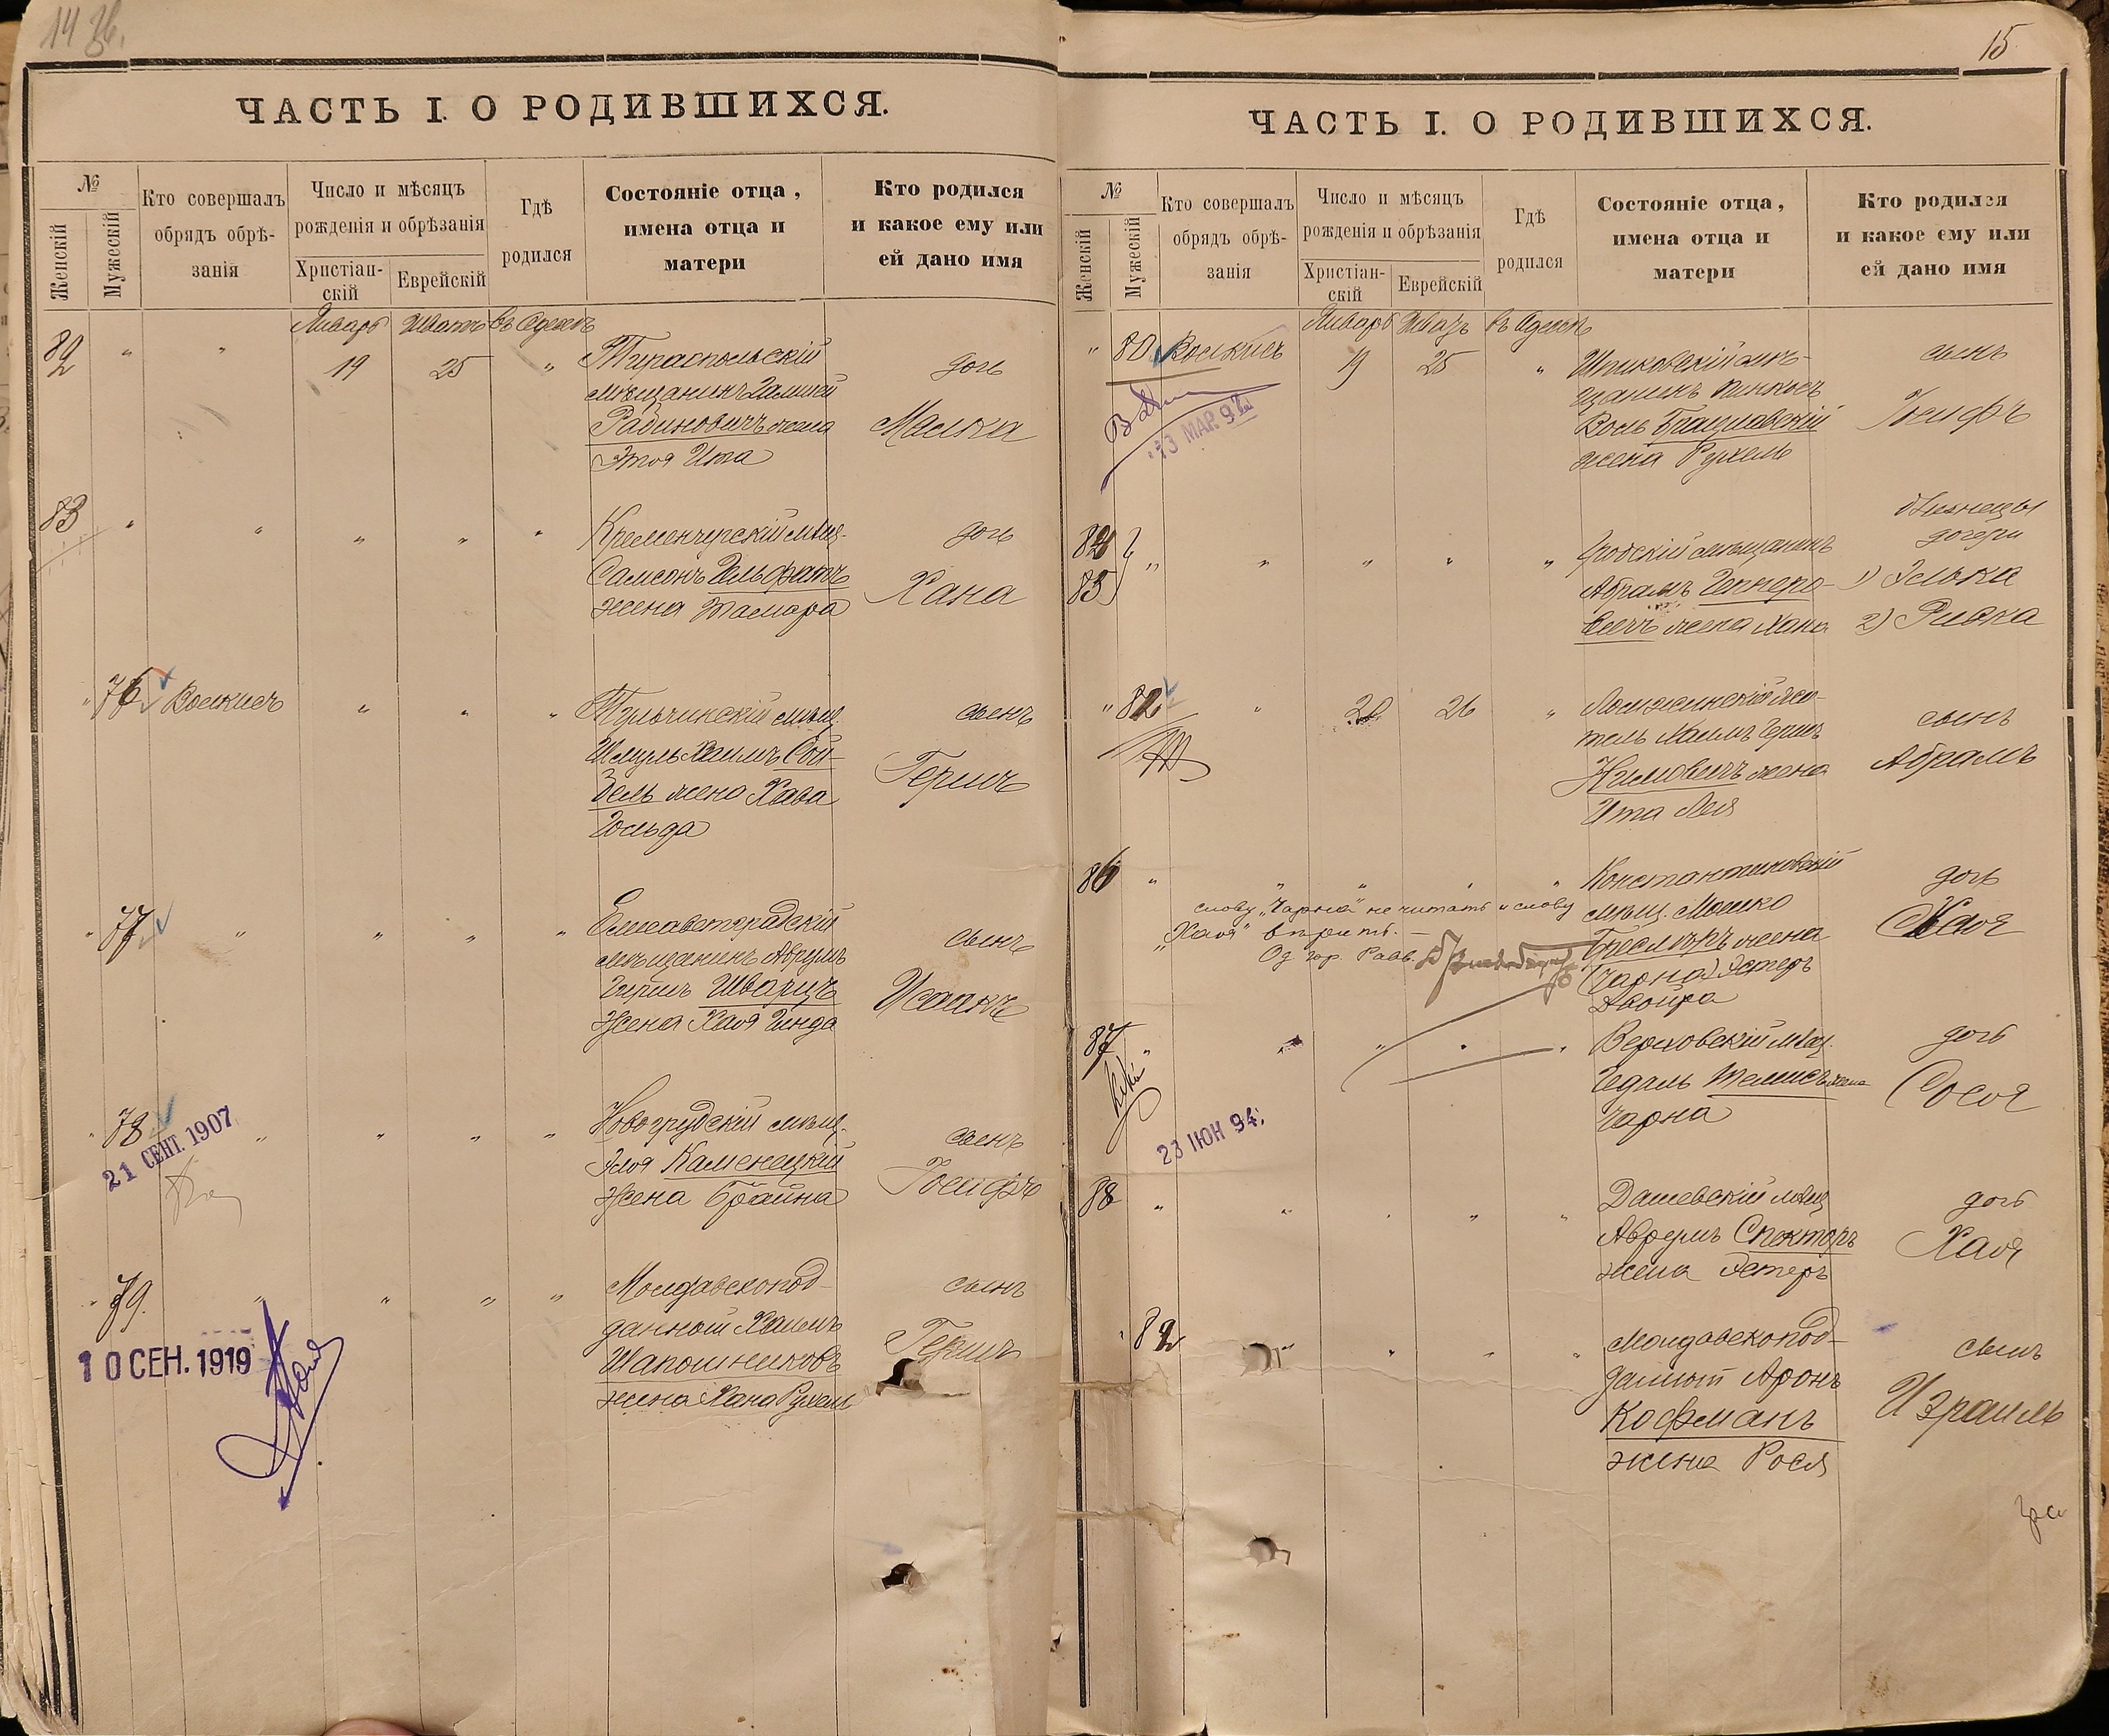 14 зв.
ЧАСТЬ I. О РОДИВШИХСЯ.
№
Женскій
Мужескій
Кто совершалъ
обрядъ обрѣ-
занія
Число и мѣсяцъ
рожденія и обрѣзанія
Христіан-
скій
Еврейскій
Гдѣ
родился
Состояніе отца,
имена отца и
матери
Кто родился
и какое ему или
ей дано имя
Январь Шватъ въ Одессѣ
82 " " 19 25 " Тираспольскій дочь
мѣщанинъ
Рабиновичъ жена Малка
Этя Ита
83 " " " " " Кременчугскій мѣщ. дочь
Самсонъ Гельфатъ
жена Тамара Хана
" 76 " " " Тульчинскій мѣщ. сынъ
Шмуль Хаимъ Сой-
бель жена Хава Гершъ
Гольда
" 77 " " " " Елисаветградскій
мѣщанинъ Аврумъ сынъ
Гершъ Шварцъ Исаакъ
жена Хая Гинда
" 78 " " " " Новогрудскій мѣщ. сынъ
21 СЕНТ. 1907
Эля Каменецкій Іосифъ
жена Брайна
" 79. " " " " Молдавскопод- сынъ
данный Хаимъ
10 СЕН. 1919
Шапошниковъ Гершъ
жена Хана Рухель
15
ЧАСТЬ I. О РОДИВШИХСЯ.
№
Женскій
Мужескій
Кто совершалъ
обрядъ обрѣ-
занія
Число и мѣсяцъ
рожденія и обрѣзанія
Христіан-
скій
Еврейскій
Гдѣ
родился
Состояніе отца,
имена отца и
матери
Кто родился
и какое ему или
ей дано имя
Январь Шватъ въ Одессѣ
" 80 19 25 " Шпиковскій мѣ- сынъ
щанинъ Пинхосъ
Волъ Брацлавскій Іосифъ
жена Рухель
13 МАР. 97
близнецы
дочери
84 " " " " " мѣщанинъ
85 Абрамъ 1) Элька
вичъ жена Хана 2) Ривка
" " 20 26 " Ломжинскій жи-
тель Хаимъ Гершъ сынъ
жена Абрамъ
Ита Лея
86 " " " " " Константиновскій дочь
слову „Чарна" не читать и слову мѣщ. Мошко
„Хая" вѣрить. Хая
Од. гор. Равв. Бреслеръ жена
(Чарна) Эстеръ
Двойра
87 " " " " Верховскій мѣщ. дочь
Гедаль жена
Чарна Сося
23 ІЮН 94.
88 " " " " " Дашевскій мѣщ. дочь
Аврумъ Спекторъ Хая
жена Эстеръ
" 82 " " " " Молдавскопод- сынъ
данный Аронъ
Кофманъ Израиль
жена Рося